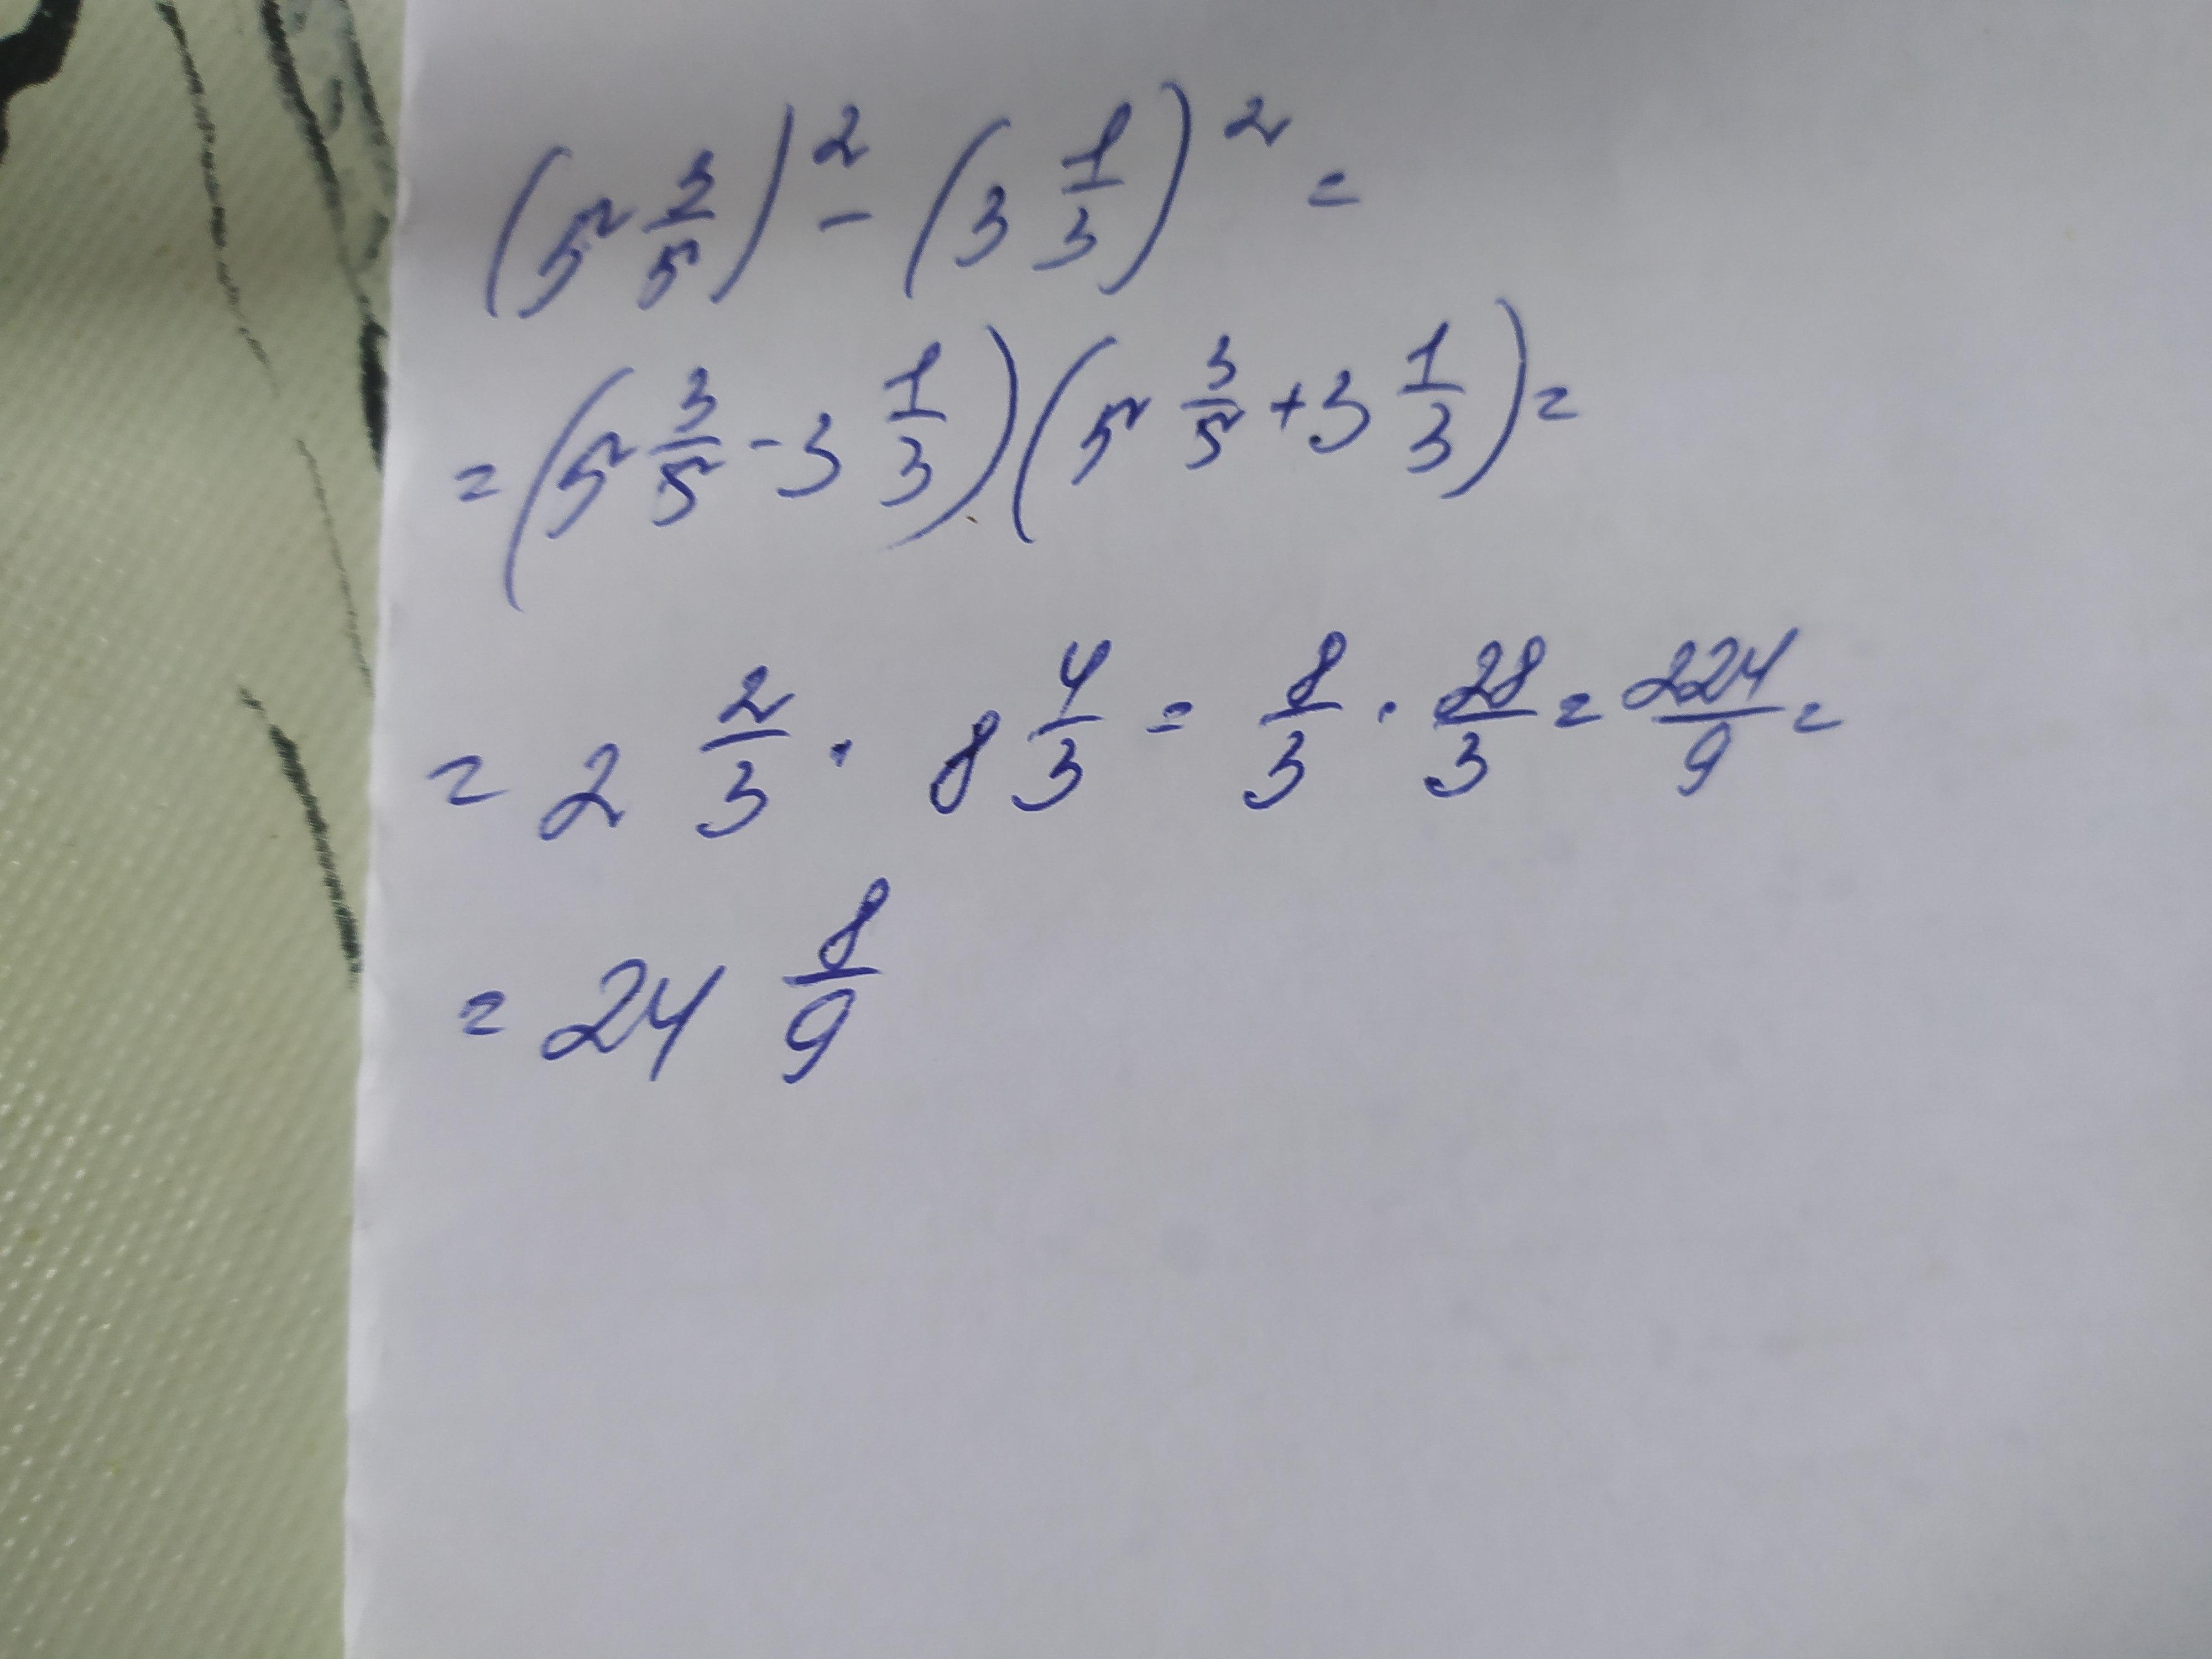 (5 3/5)² - (3 1/3)² =
= (5 3/5 - 3 1/3)(5 3/5 + 3 1/3) =
= 2 2/3 · 8 4/3 = 8/3 · 28/3 = 224/9 =
= 24 8/9